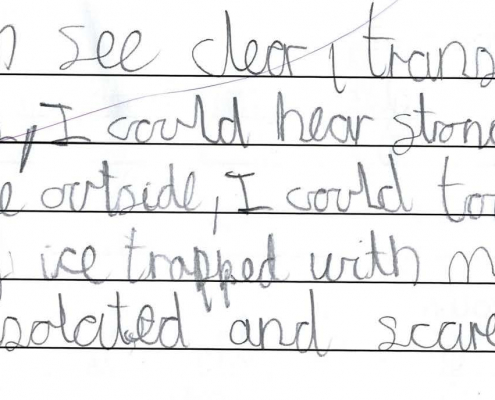 see clear, trans
, I could hear stron
e outside, I could to
ice trapped with m
solated and scare